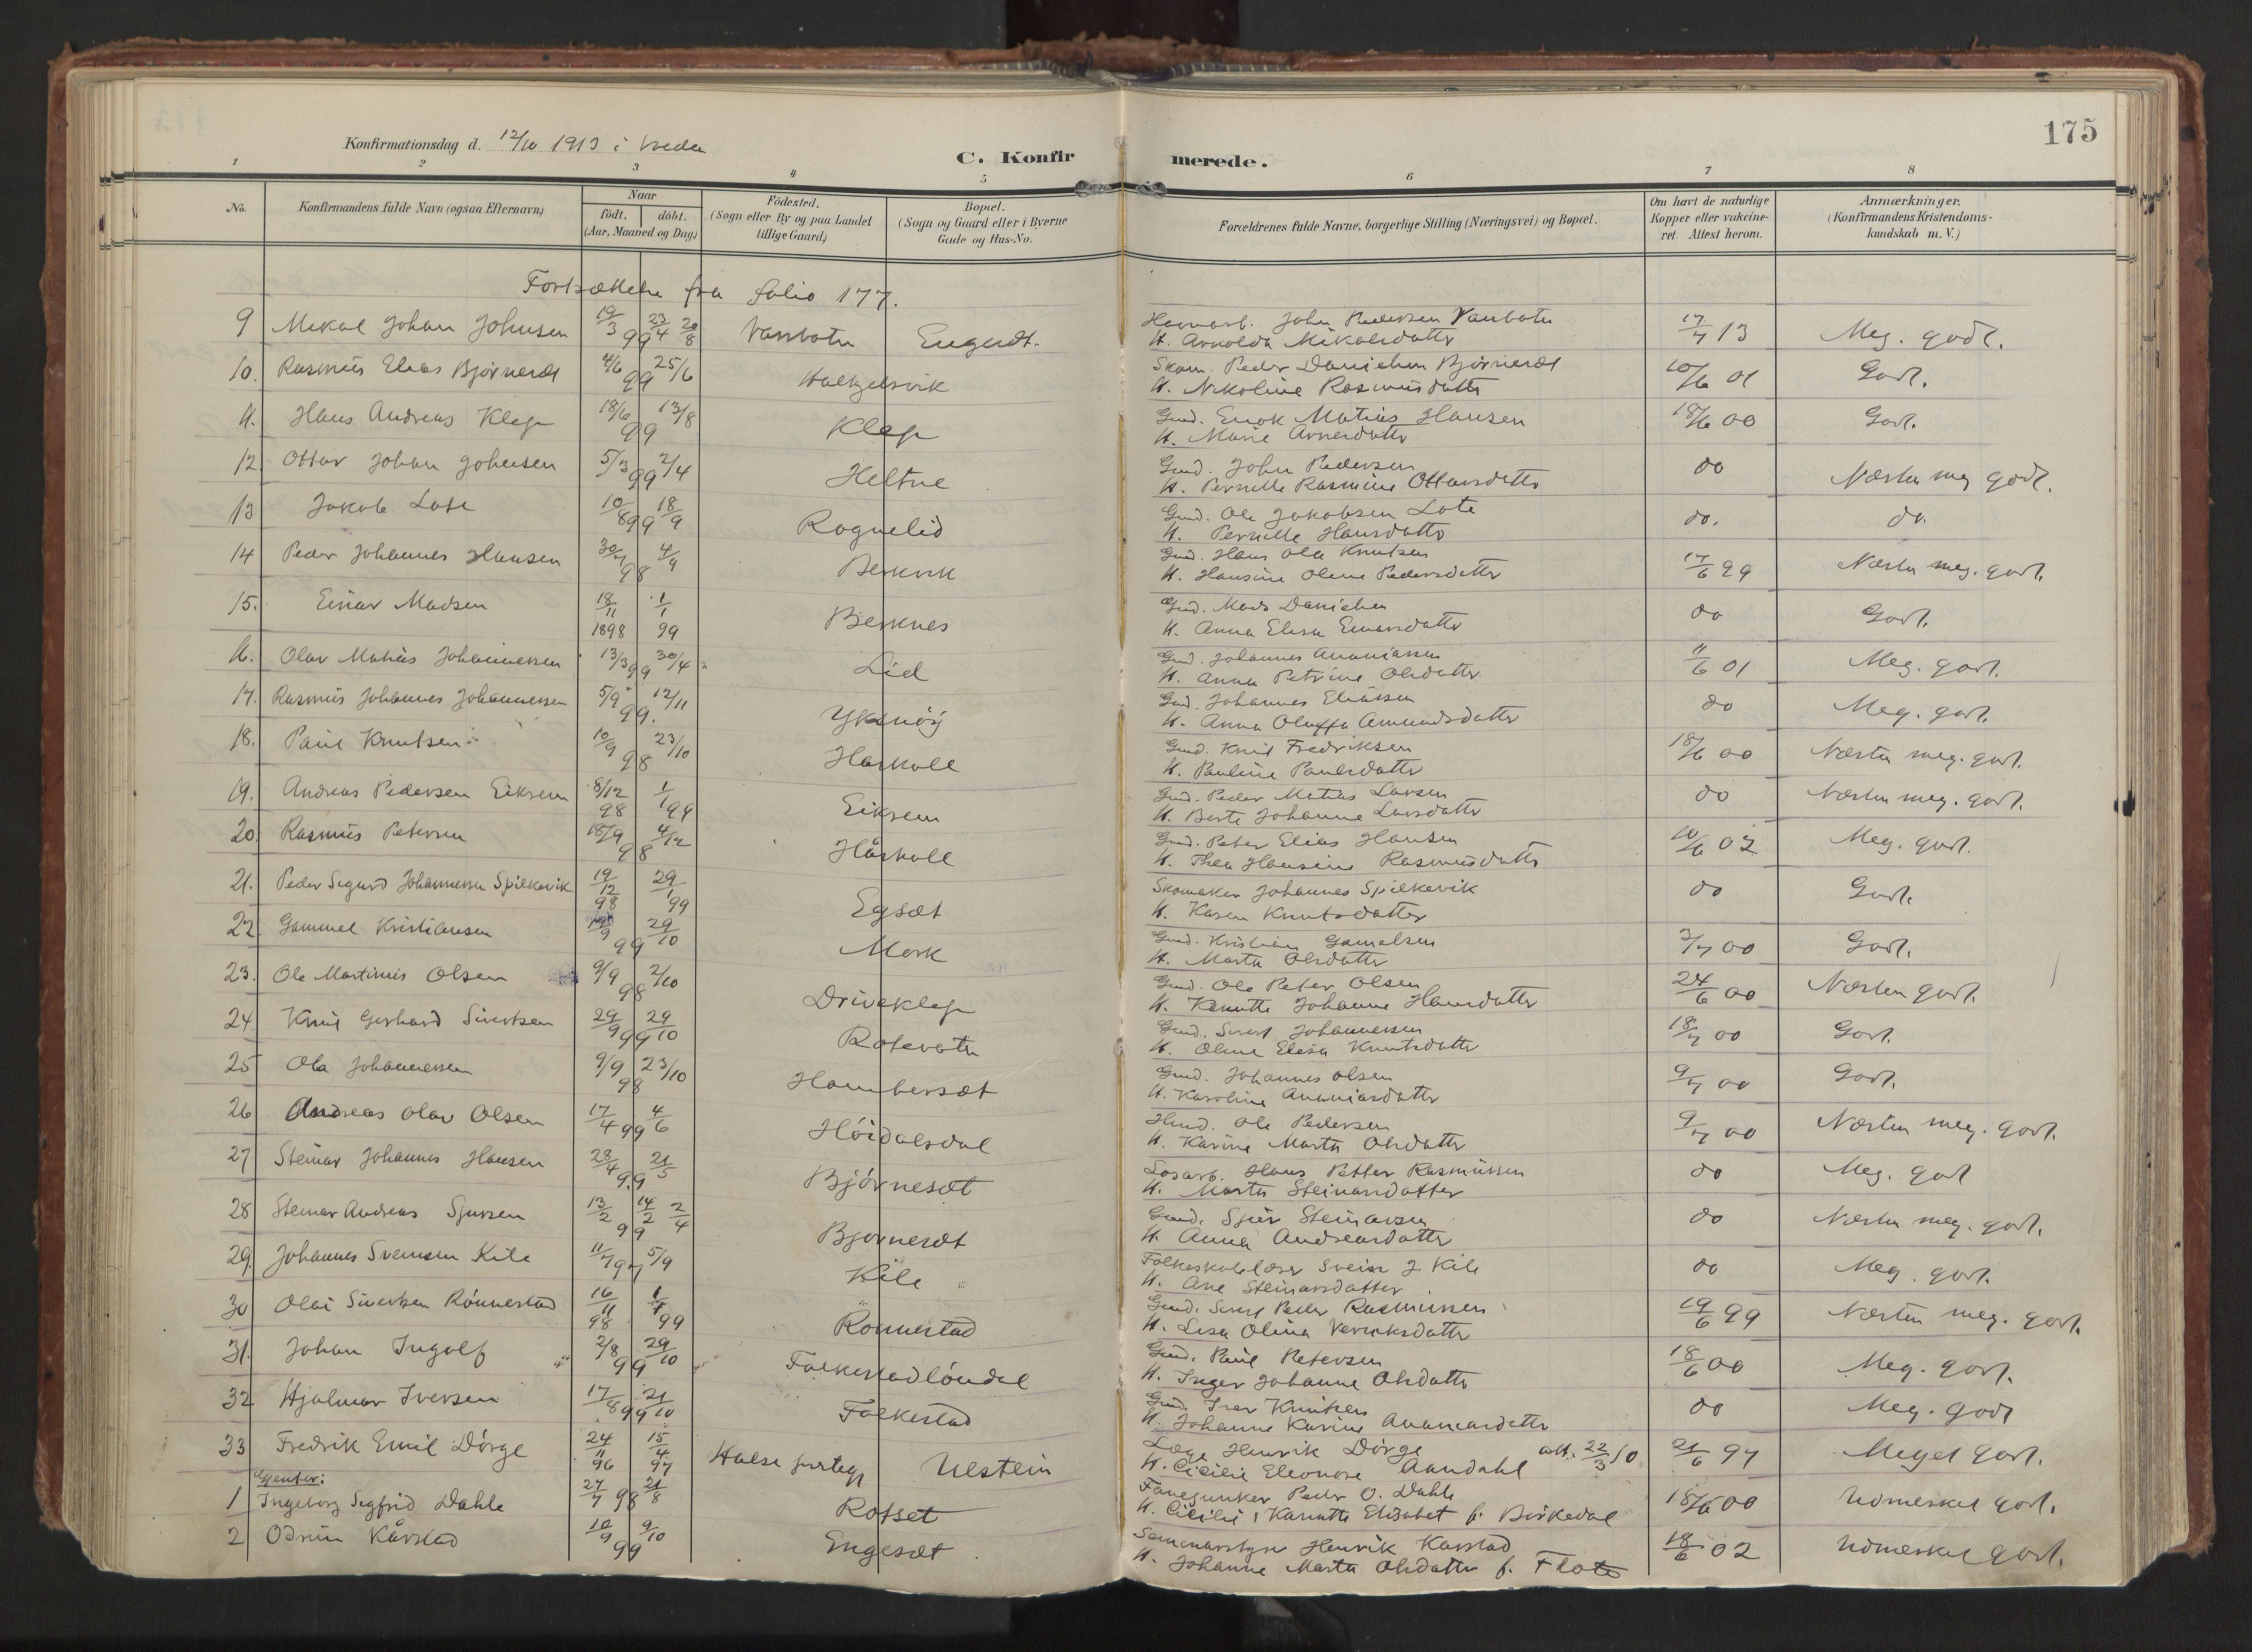 175
Konfirmationsdag d. 12/10 1913 i
C. Konfirmerede.
1 2 3 4 5 6 7 8
No. Konfirmandens fulde Navn (ogsaa Efternavn) Naar født. døbt. (Aar, Maaned og Dag) Fødested. (Sogn eller By og paa Landet tillige Gaard) Bopæl. (Sogn og Gaard eller i Byerne Gade og Hus-No. Forældrenes fulde Navne, borgerlige Stilling (Næringsvei) og Bopæl. Om havt de naturlige Kopper eller vakcineret. Attest herom. Anmærkninger. (Konfirmandens Kristendomskundskab m. V.)
Fortsættelse fra folio 177.
9 Mikal Johan Johnsen 19/3 99 23/4 20/8 Vassbotn Johan Pedersen Vassbotn 17/7 13 Meg. godt.
H. Arnolda Mikalsdatter
10. Rasmus Elias Bjørneset 4/6 99 25/6 Peder Danielsen Bjørneset 10/6 01 Godt.
H. Nikoline Rasmusdatter
11. Hans Andreas Klep 18/6 99 13/8 Klep Gmd. Enok Matias Hansen 18/6 00 Godt.
H. Marie Arnesdatter
12. Ottar Johan Johnsen 5/3 99 2/4 Heltne Gmd. John Pedersen do Næsten meg godt.
H. Pernille Rasmine Ottarsdatter
13 Jakob Lote 10/8 99 18/9 Rognelid Gmd. Ole Jakobsen Lote do. do.
H. Pernille Hansdatter
14 Peder Johannes Hansen 30/7 98 4/9 Berkvik Gmd. Hans Ola Knutsen 17/6 99 Næsten meg. godt.
H. Hansine Oline Pedersdatter
15. Einar Madsen 18/11 1898 1/1 99 Bjerknes Gmd. Mads Danielsen do Godt.
H. Anna Elisa Einarsdatter
16. Olav Matias Johannessen 13/3 99 30/4 Lid Gmd. Johannes Ananiassen 11/6 01 Meg. godt.
H. Anna Petrine Olsdatter
17. Rasmus Johannes Johannessen 5/9 99. 12/11 Gmd. Johannes Eliassen do Meg. godt.
H. Anna Oluffa Amundsdatter
18. Paul Knutsen 10/9 98 23/10 Haskoll Gmd. Knut Fredriksen 18/6 00 Næsten meg. godt.
H. Pauline Paulsdatter
19. Andreas Pedersen Eiksem 8/12 98 1/1 99 Eiksem Gmd. Peder Matias Larsen do Næsten meg. godt.
H. Berte Johanne Larsdatter
20. Rasmus Petersen 18/9 98 4/12 Håskoll Gmd. Peter Elias Hansen 10/6 02 Meg. godt.
H. Thea Hansine Rasmusdatter
21. Peder Sigurd Johannessen Spilkevik 19/12 98 29/1 99 Egsæt Skomaker Johannes Spilkevik do Godt.
H. Karen Knutsdatter
22. Gammel Kristiansen 99 29/10 Mork Gmd. Kristian Gamelsen 3/7 00 Godt.
H. Marta Olsdatter
23. Ole Martinus Olsen 9/9 98 2/10 Driveklep Gmd. Ole Peter Olsen 24/6 00 Næsten godt.
H. Johanne Hansdatter
24 Knut Gerhard Sivertsen 29/9 99 29/10 Rotevatn Gmd. Sivert Johannessen 18/7 00 Godt.
H. Oline Elisa Knutsdatter
25 Ola Johannessen 9/9 98 23/10 Hambersæt Gmd. Johannes Olsen 9/7 00 Godt.
H. Karoline Ananiasdatter
26 Andreas Olav Olsen 17/4 99 4/6 Höidalsdal Ole Pedersen 9/7 00 Næsten meg. godt.
H. Karine Marta Olsdatter
27 Steinar Johannes Hansen 28/4 99 21/5 Bjørnesæt Losarb. Hans Petter Rasmussen do Meg. godt
H. Marta Steinarsdatter
28 Steinar Andreas Sjursen 13/2 99 14/2 2/4 Bjørnesæt Gmd. Sjur Steinarsen do Næsten meg. godt.
H. Anna Andreasdatter
29. Johannes Sveinsen Kile 11/7 97 5/9 Kile Folkeskolelærer Svein J. Kile do Meg. godt.
H. Ane Steinarsdatter
30 Olai Sivertsen Rønnestad 16/11 98 1/1 99 Rønnestad Gmd. Sivert Peder Rasmussen 19/6 99 Næsten meg. godt.
H. Lisa Olina
31. Johan Ingolf 2/8 99 29/10 Folkestadløndal Gmd. Paul Petersen 18/6 00 Meg. godt.
H. Inger Johanne Olsdatter
32 Hjalmar Iversen 17/8 99 21/10 Folkestad Gmd. Iver Knutsen do Meg. godt
H. Johanne Karine Ananiasdatter
33 Fredrik Emil Dörge 24/11 96 15/4 97 Halse Ulstein Læge Henrik Dörge att. 22/3 10 21/6 97 Meget godt.
H. Cicilie Eleonore Aandahl
Jenter:
1 Ingeborg Segfrid Dahle 27/7 98 21/8 Rotset Fanejunker Peder O. Dahle 18/6 00 Udmerket godt.
H. Cicilie Elisabet f. Birkedal
2 Odrun Kårstad 10/9 99 9/10 Engesæt Henrik Karstad 18/6 02 Udmerket godt.
H. Johanne Marta Olsdatter f. Flote